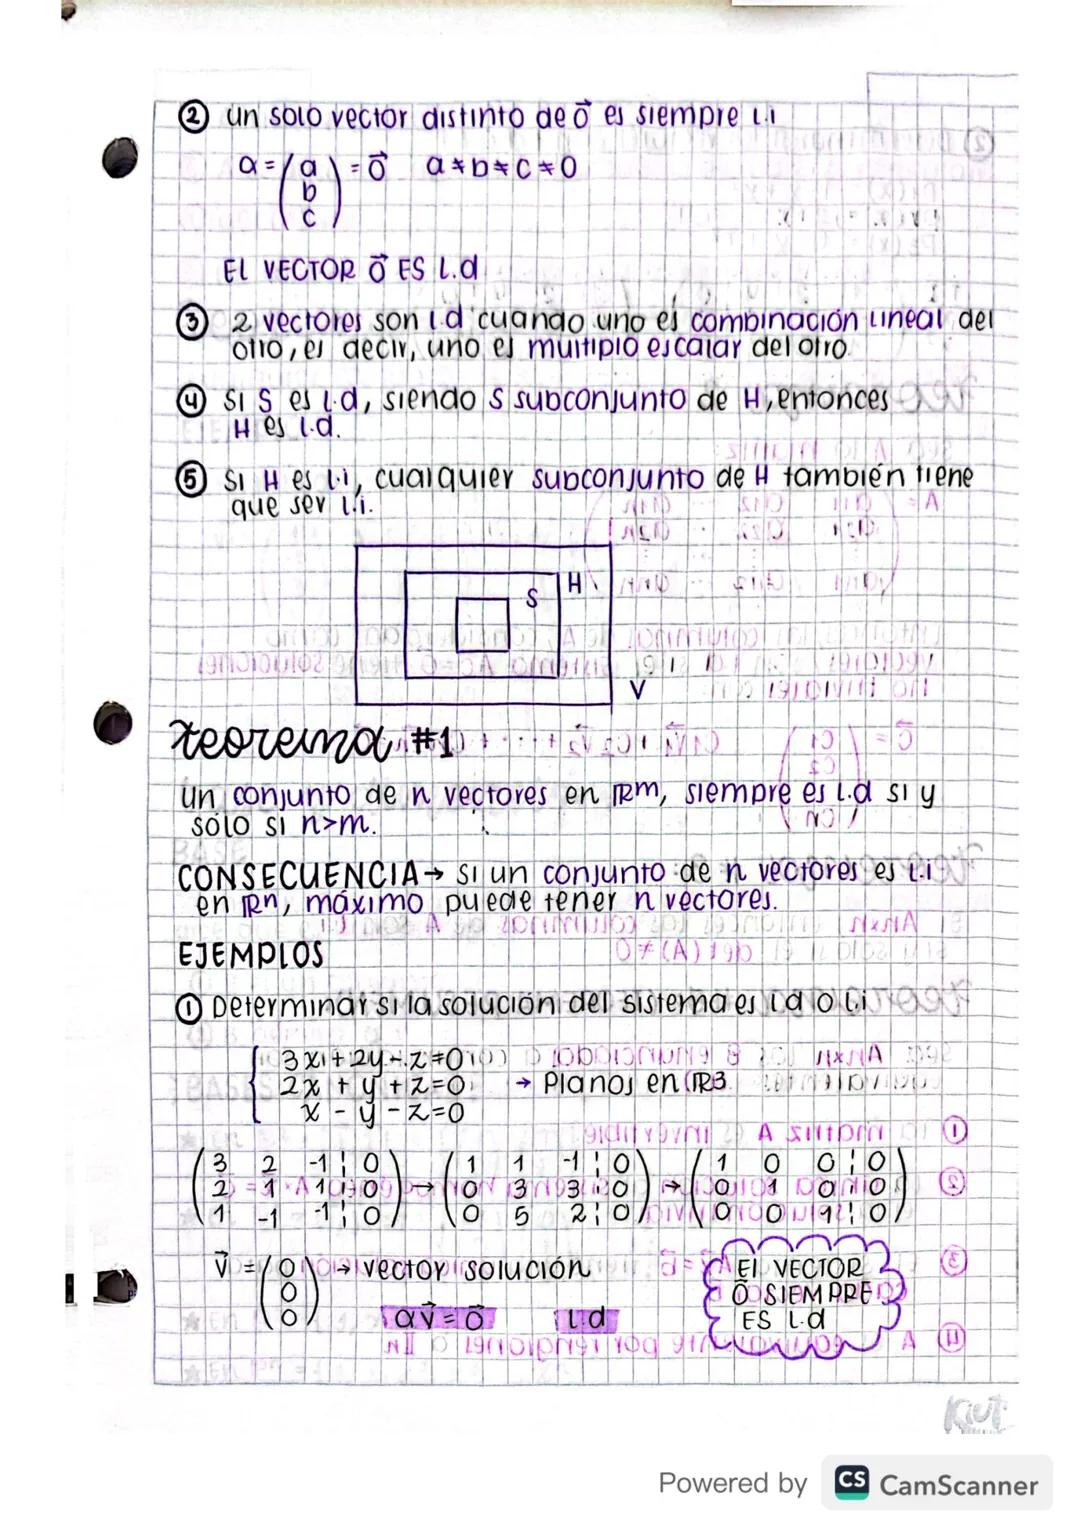 ② un solo vector distinto de o⃗ es siempre l.i
α = ( a b c ) = o⃗ a ≠ b ≠ c ≠ 0
El VECTOR O⃗ ES L.d
③ 2 vectores son l.d cuando uno es combinación lineal del
otro, es decir, uno es multiplo escalar del otro.
④ Si S es l.d, siendo S subconjunto de H, entonces
H es l.d.
⑤ Si H es l.i, cualquier subconjunto de H también tiene
que ser l.i.
H
S
V
teorema #1
un conjunto de n vectores en IRm, siempre es l.d si y
sólo si n>m.
CONSECUENCIA → si un conjunto de n vectores es l.i
en IRn, máximo puede tener n vectores.
EJEMPLOS
① Determinar si la solución del sistema es l.d o l.i
3x + 2y - z = 0
2x + y + z = 0 → Planos en IR3.
x - y - z = 0
( 3 2 -1 ¦ 0 ) ( 1 1 -1 ¦ 0 ) ( 1 0 0 ¦ 0 )
( 2 1 1 ¦ 0 ) → ( 0 3 3 ¦ 0 ) → ( 0 1 0 ¦ 0 )
( 1 -1 -1 ¦ 0 ) ( 0 5 2 ¦ 0 ) ( 0 0 1 ¦ 0 )
v⃗ = ( 0 0 0 ) → vector solución
αv⃗ = o⃗ l.d
El VECTOR
O⃗ SIEMPRE
ES L.d
Kiut
Powered by CS CamScanner